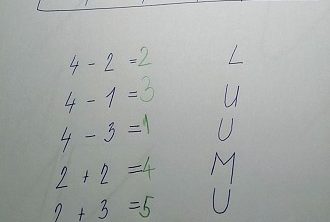 4 - 2 = 2 L
4 - 1 = 3 U
4 - 3 = 1 U
2 + 2 = 4 M
2 + 3 = 5 U